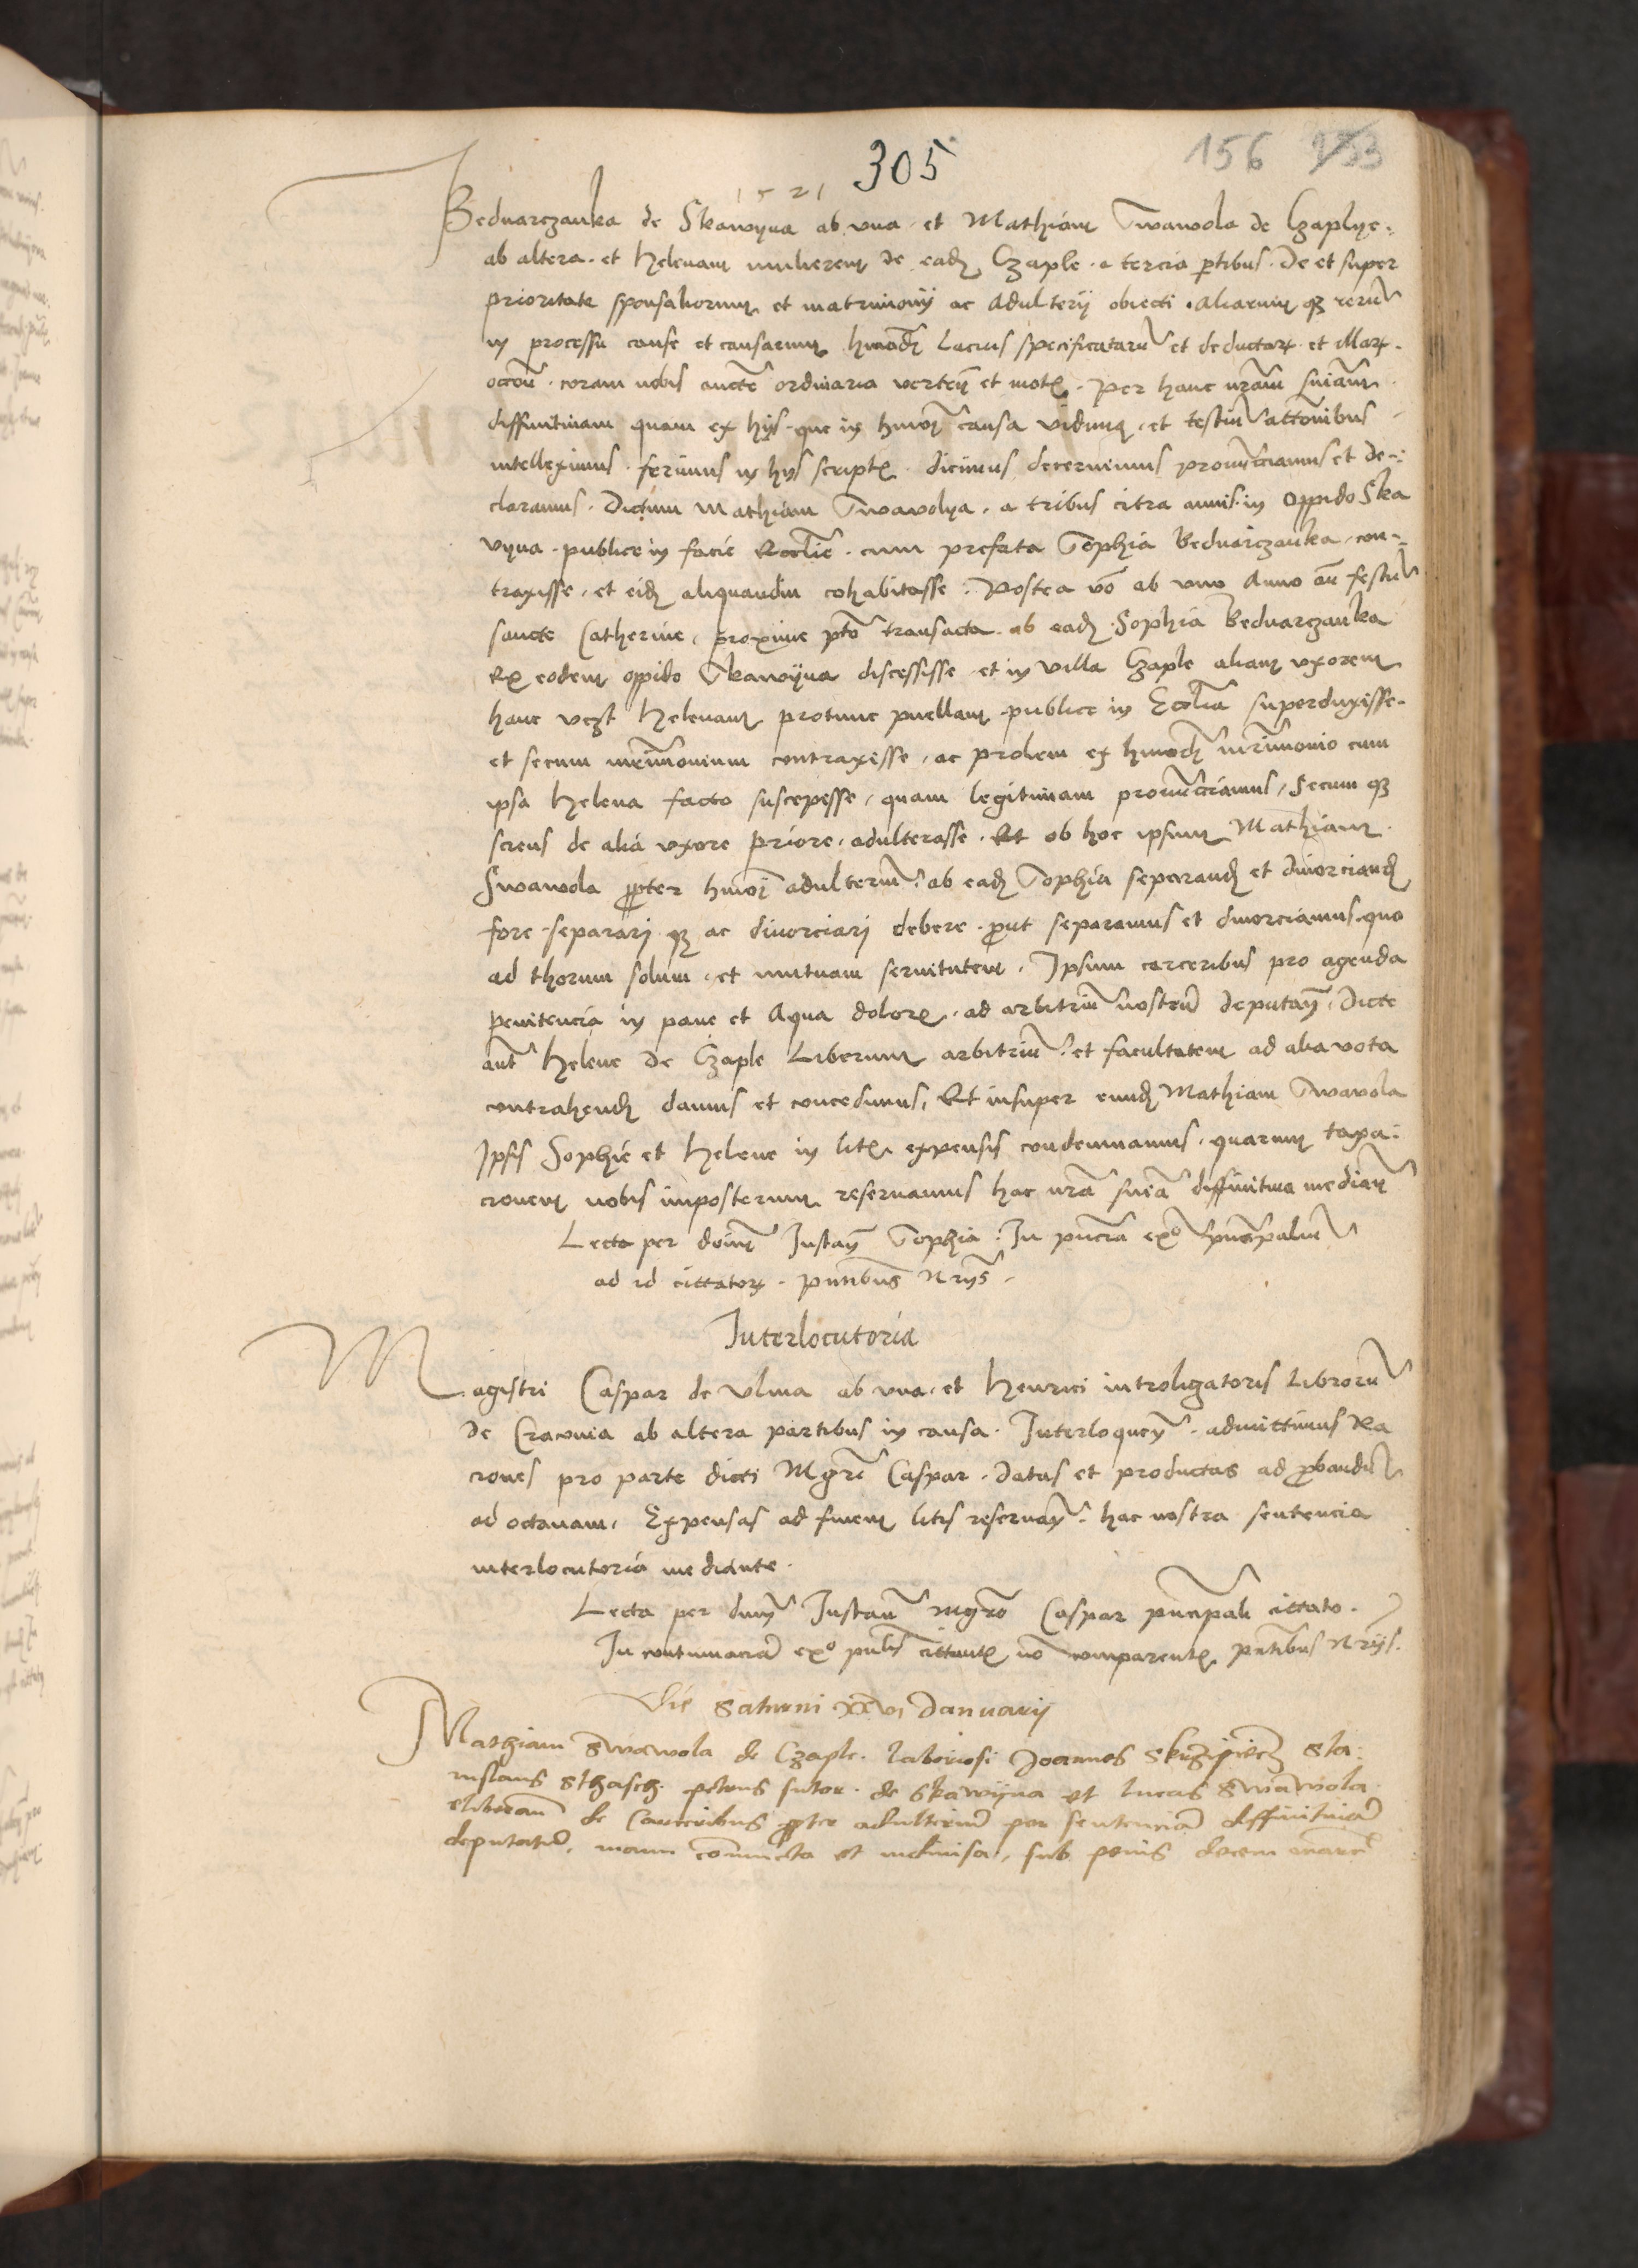 305
156 153
1521
Bednarczanka de Skawyna ab vna et Mathiam Swawola de Czaplye
ab altera et Helenam mulierem de ead Czaple a tercia ptibus De et super
prioritate sponsaliorum et matrimonij ac Adulterij obiecti Aliarum q3 reru
in processu cause et causarum hmodi Lacius specificataru et deductar et illar
occoe coram nobis aucte ordinaria verten et mota Per hanc nram sniam
diffinitivam quam ex hijs que in hmoi causa vidimus et testiu attonibus
intelleximus ferimus in hijs scriptis dicimus decernimus pronucciamus et de-
claramus Dictum Mathiam Swavolya a tribus citra annis in Oppido Ska
vyna publice in facie Ecclie cum prefata Sophia Bednarczanka con-
traxisse et eid aliquandiu cohabitasse Postea vo ab vno Anno an festu
sancte Catherine proxime pto transacta ab ead Sophia Bednarczanka
Ex eodem oppido Skawyna discessisse et in villa Czaple aliam vxorem
hanc vez Helenam protunc puellam publice in Ecclia superduxisse
et secum mrimonium contraxisse ac prolem ex hmodi mrimonio cum
ipsa Helena facto suscepesse quam legitimam pronucciamus Secum q3
sciens de alia vxore priore adulterasse Et ob hoc ipsum Mathiam
Swawola ppter hmoi adulteriu ab ead Sophia separand et diuorciand
fore separarj q3 ac diuorciarj debere put separamus et diuorciamus quo
ad thorum solum et mutuam seruitutem Ipsum carceribus pro agenda
penitencia in pane et Aqua doloris ad arbitriu nostru deputan Dicte
aut Helene de Czaple Liberum arbitriu et facultatem ad alia vota
contrahend damus et concedimus Et insuper eund Mathiam Swavola
Ipsis Sophie et Helene in litis expensis condemnamus quarum taxa-
cionem nobis imposterum reseruamus hac nra snia diffinitiua median
Lecta per domi Instan Sophia In pncia exo pncipalium
ad id cittator pntibus Nrijs
Interlocutoria
Magistri Caspar de Vlma ab vna et Henrici introligatoris Libroru
de Cracouia ab altera partibus in causa Interloquen admittimus Ra
ciones pro parte dicti Mgri Caspar Datas et productas ad pbandu
ad octauam Expensas ad finem litis reseruan hac nostra sentencia
interlocutoria mediante
Lecta per dnum Instan mgro Caspar pncipali cittato
In contumacia exo ptis cittantis no comparentis pntibus Nrijs
Die Saturni xxvi Januarij
Mathiam Swawola de Czaple laboriosi Joannes Skrzipiecz Sta-
nislaus Sthasch petrus sutor de Skawyna et lucas Swawola
eliberau de Carceribus ppter adulteriu per sentencia diffinitiua
deputatu, manu coniuncta et indiuisa, sub penis decem marc